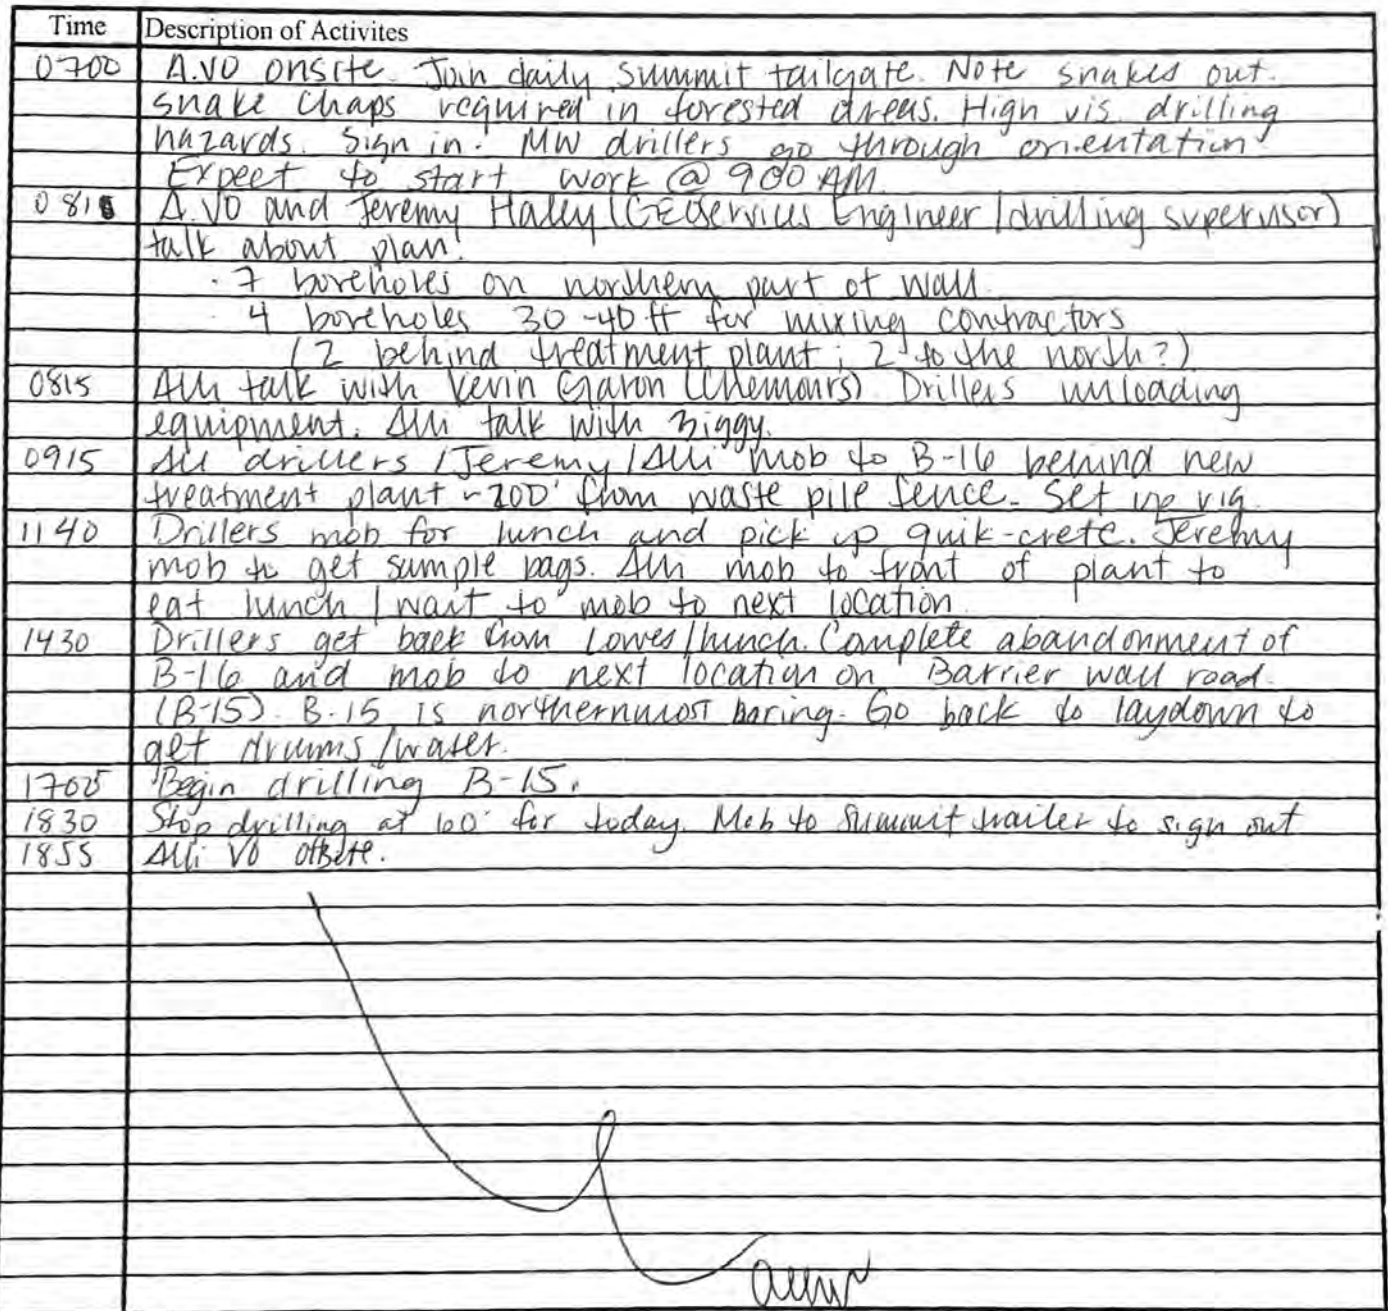 Time Description of Activites
0700 A.VO onsite. Join daily summit tailgate. Note snakes out.
snake chaps required in forested areas. High vis. drilling
hazards. Sign in. MW drillers go through orientation
Expect to start work @ 900 AM.
081 A.VO and Jeremy Haley (GEOservices Engineer / drilling supervisor)
talk about plan:
· 7 boreholes on northern part of wall.
· 4 boreholes 30-40 ft for mixing contractors
(2 behind treatment plant; 2 to the north?)
0815 Alli talk with Kevin Garon (Chemours). Drillers unloading
equipment. Alli talk with Ziggy.
0915 All drillers / Jeremy / Alli mob to B-16 behind new
treatment plant ~200' from waste pile fence. Set up rig.
1140 Drillers mob for lunch and pick up quik-crete. Jeremy
mob to get sample bags. Alli mob to front of plant to
eat lunch / wait to mob to next location.
1430 Drillers get back from Lowes/lunch. Complete abandonment of
B-16 and mob to next location on Barrier wall road.
(B-15). B-15 is northernmost boring. Go back to laydown to
get drums/water.
1705 Begin drilling B-15.
1830 Stop drilling at 60' for today. Mob to Summit trailer to sign out
1855 Alli VO offsite.